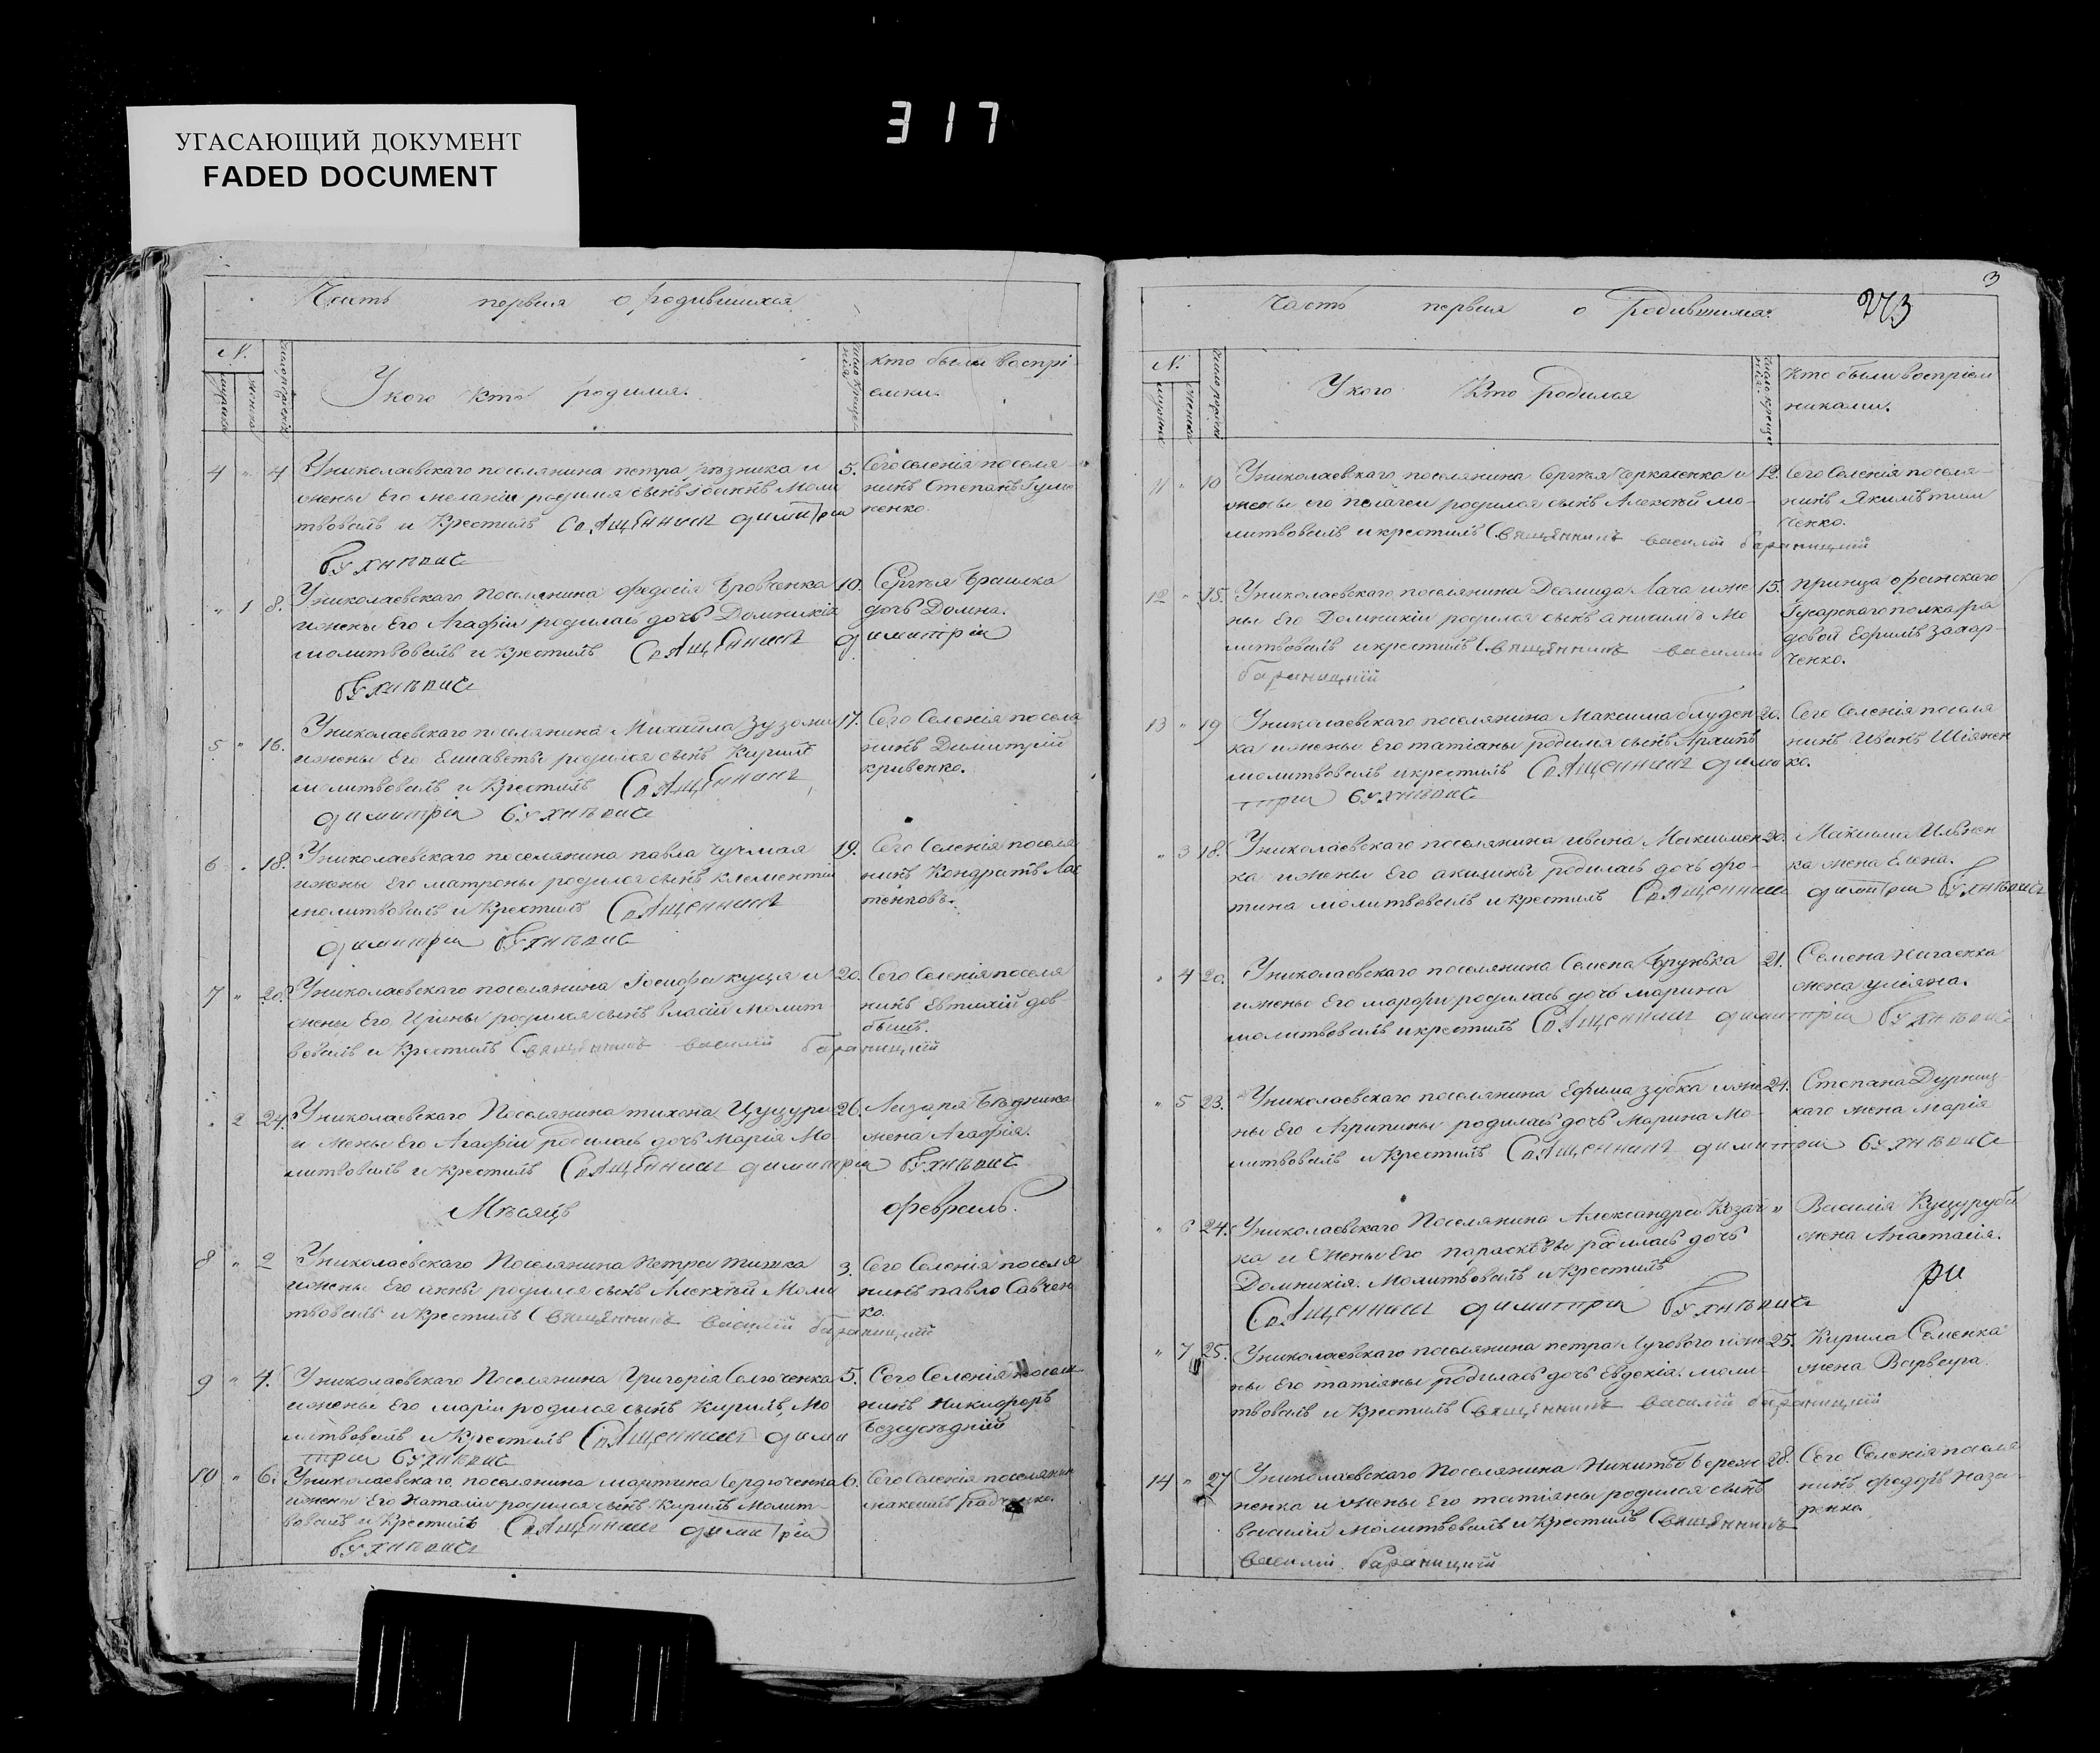 УГАСАЮЩИЙ ДОКУМЕНТ
FADED DOCUMENT
317
Часть первая о родившихся.
№.
Укого кто родился.
кто были воспрі-
емники.
4 " 4 Униколаевскаго поселянина петра
жены Его мелании родился сынъ Моли
твовалъ и Крестилъ Священникъ димитрій
Бухнѣвичъ
5. Сего селенія поселя-
нинъ Степанъ Гуме
ненко.
" 1 8. Униколаевскаго поселянина федосія Бровченка
ижены Его Агафіи родилась дочь Домникія
молитвовалъ и Крестилъ Священникъ димитрій
Бухнѣвичъ
10. Сергѣя Брашка
дочь Домна.
5 " 16. Униколаевскаго поселянина Михайла Зузули
ижены Его Елисаветы родился сынъ Кирилъ
молитвовалъ и Крестилъ Священникъ
димитрій Бухнѣвичъ
17. Сего Селенія поселя
нинъ Димитрій
кривенко.
6 " 18. Униколаевскаго поселянина павла Чучмая
ижены Его матроны родился сынъ климентій
молитвовалъ и Крестилъ Священникъ
димитрій Бухнѣвичъ
19. Сего Селенія поселя
нинъ Кондратъ Лас
тенковъ.
7 " 20. Униколаевскаго поселянина Іосифа куця и
жены Его Ирины родился сынъ власій молит-
вовалъ и Крестилъ Священникъ василій бараницкій
20. Сего Селенія поселя
нинъ Евтихій дов-
бышъ.
" 2 24. Униколаевскаго Поселянина тихона Цуцуры
и жены Его Агафіи родилась дочь Марія Мо-
литвовалъ и Крестилъ Священникъ димитрій Бухнѣвичъ
26. Лазаря Бѣдника
жена Агафія.
Мѣсяцъ февраль.
8 " 2 Униколаевскаго Поселянина Петра тишка
ижены Его анны родился сынъ Алексѣй Моли
твовалъ и Крестилъ Священникъ василій бараницкій
3. Сего Селенія поселя
нинъ павло Савчен
ко.
9 " 4. Униколаевскаго Поселянина Григорія Солюченка
ижены Его маріи родился сынъ Кирилъ, Мо
литвовалъ и Крестилъ Священникъ дими
трій Бухнѣвичъ
5. Сего Селенія поселя
нинъ Никифоръ
Безусѣдній
10 " 6. Униколаевскаго поселянина мартина Сердюченка
ижены Его Наталіи родился сынъ Кирилъ Молит-
вовалъ и Крестилъ Священникъ димитрій
Бухнѣвичъ
6. Сего Селенія поселянин
максимъ Радченко.
3
273
Часть первая о Родившихся.
№.
Укого Кто родился
Кто были воспріем
никами.
11 " 10 Униколаевскаго поселянина Сергѣя Черкасенка и
жены его пелагеи родился сынъ Алексѣй мо-
литвовалъ икрестилъ Священникъ василій бараницкій
12. Сего Селенія поселя-
нинъ Якимъ тим
ченко.
12 " 15. Униколаевскаго поселянина Деомида Лача иже
ны Его Домникіи родился сынъ анисимъ Мо
литвовалъ икрестилъ Священникъ василій
бараницкій
15. принца оранскаго
Гусарскаго полка ря
довой Ефимъ Захар-
ченко.
13 " 19 Униколаевскаго поселянина Максима блуден
ка ижены Его татіаны родился сынъ Архипъ
молитвовалъ икрестилъ Священникъ дими
трій Бухнѣвичъ
20. Сего Селенія поселя
нинъ Иванъ Шіянен
ко.
" 3 18. Униколаевскаго поселянина ивана Максимен
ка ижены Его акилины родилась дочь фо-
тина молитвовалъ и крестилъ Священникъ димитрій Бухнѣвичъ
20. Максима Ильчен
ка жена Елена.
" 4 20. Униколаевскаго поселянина Семена Брунька
ижены Его марфы родилась дочь марина
молитвовалъ икрестилъ Священникъ димитрій Бухнѣвичъ
21. Семена Нагаенка
жена уліяна.
" 5 23. Униколаевскаго поселянина Ефима зубка иже
ны Его Агрипины родилась дочь Марина Мо-
литвовалъ и Крестилъ Священникъ димитрій Бухнѣвичъ
24. Степана Дурниц-
каго жена марія
" 6 24. Униколаевскаго Поселянина Александра Козач
ка и Жены Его парасковѣи родилась дочь
Домникія. Молитвовалъ и Крестилъ
Священникъ димитрій Бухнѣвичъ
" Василія Куцуруба
жена Анастасія.
" 7 25. Униколаевскаго поселянина петра Лугового иже
ны Его татіяны родилась дочь Евдокія. моли-
твовалъ и Крестилъ Священникъ василій бараницкій
25. Кирила Семенка
жена Варвара.
14 " 27 Униколаевскаго Поселянина Никиты Бережн
ненка и жены Его татіяны родился сынъ
василій молитвовалъ и Крестилъ Священникъ
василій бараницкій
28. Сего Селенія поселя
нинъ федоръ Наза-
ренко.